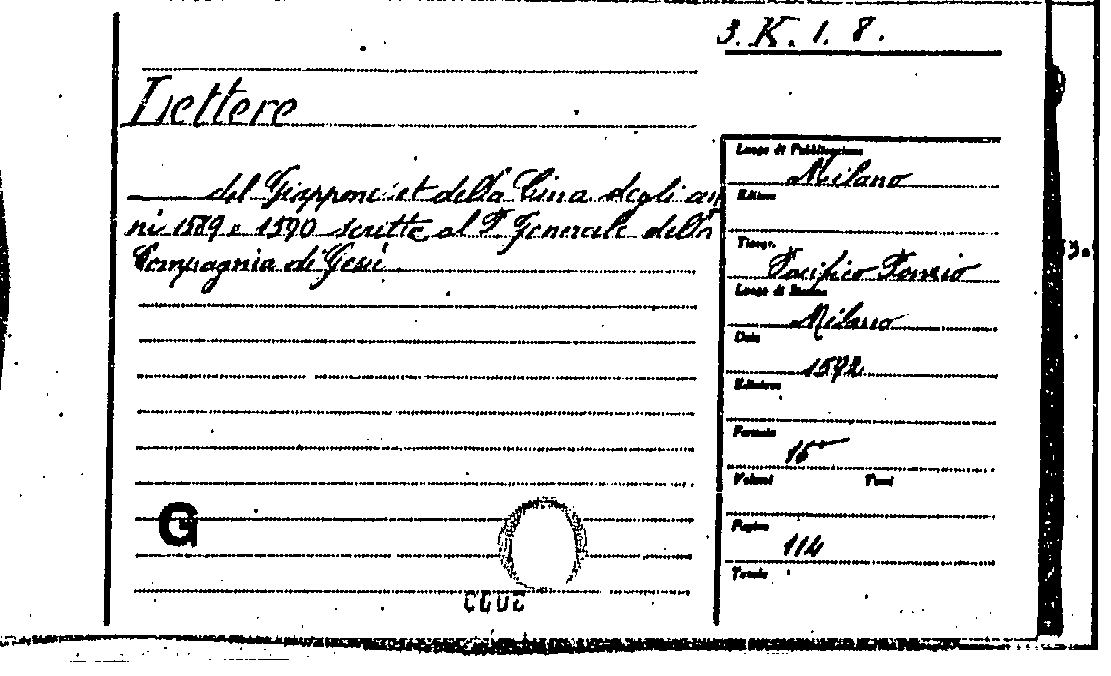 3. K. 1. 8.
Lettere
del Giappone et della Cina degli an
ni 1589 e 1590 scritte al P. Generale della
Compagnia di Gesù.
Luogo di Pubblicazione
Milano
Editore
Tipogr.
Pacifico Ponzio
Luogo di Stampa
Milano
Data
1592
Edizione
Formato
16°
Volumi Tomi
Pagine
114
Tavole
G